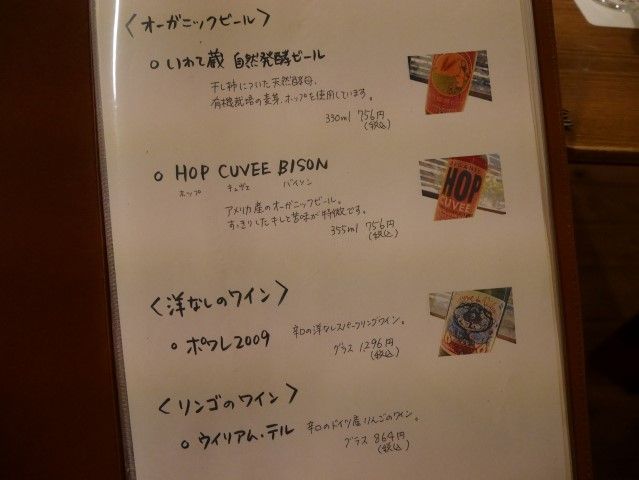 〈オーガニックビール〉
○ いわて蔵 自然発酵ビール
干し柿についた天然酵母、
有機栽培の麦芽、ホップを使用しています。
330ml 756円
(税込)
○ HOP CUVEE BISON
ホップ キュヴェ バイソン
アメリカ産のオーガニックビール。
すっきりしたキレと苦味が特徴です。
355ml 756円
(税込)
HOP
CUVEE
〈洋なしのワイン〉
○ ポワレ2009 辛口の洋なしスパークリングワイン。
グラス 1,296円
(税込)
〈リンゴのワイン〉
○ ウイリアム・テル 辛口のドイツ産りんごのワイン。
グラス 864円
(税込)